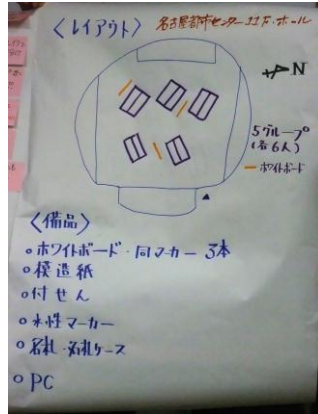 〈レイアウト〉
名古屋都市センター11F・ホール
N
5グループ
(各6人)
ホワイトボード
〈備品〉
○ホワイトボード・同マーカー 3本
○模造紙
○付せん
○水性マーカー
○名札・名札ケース
○PC